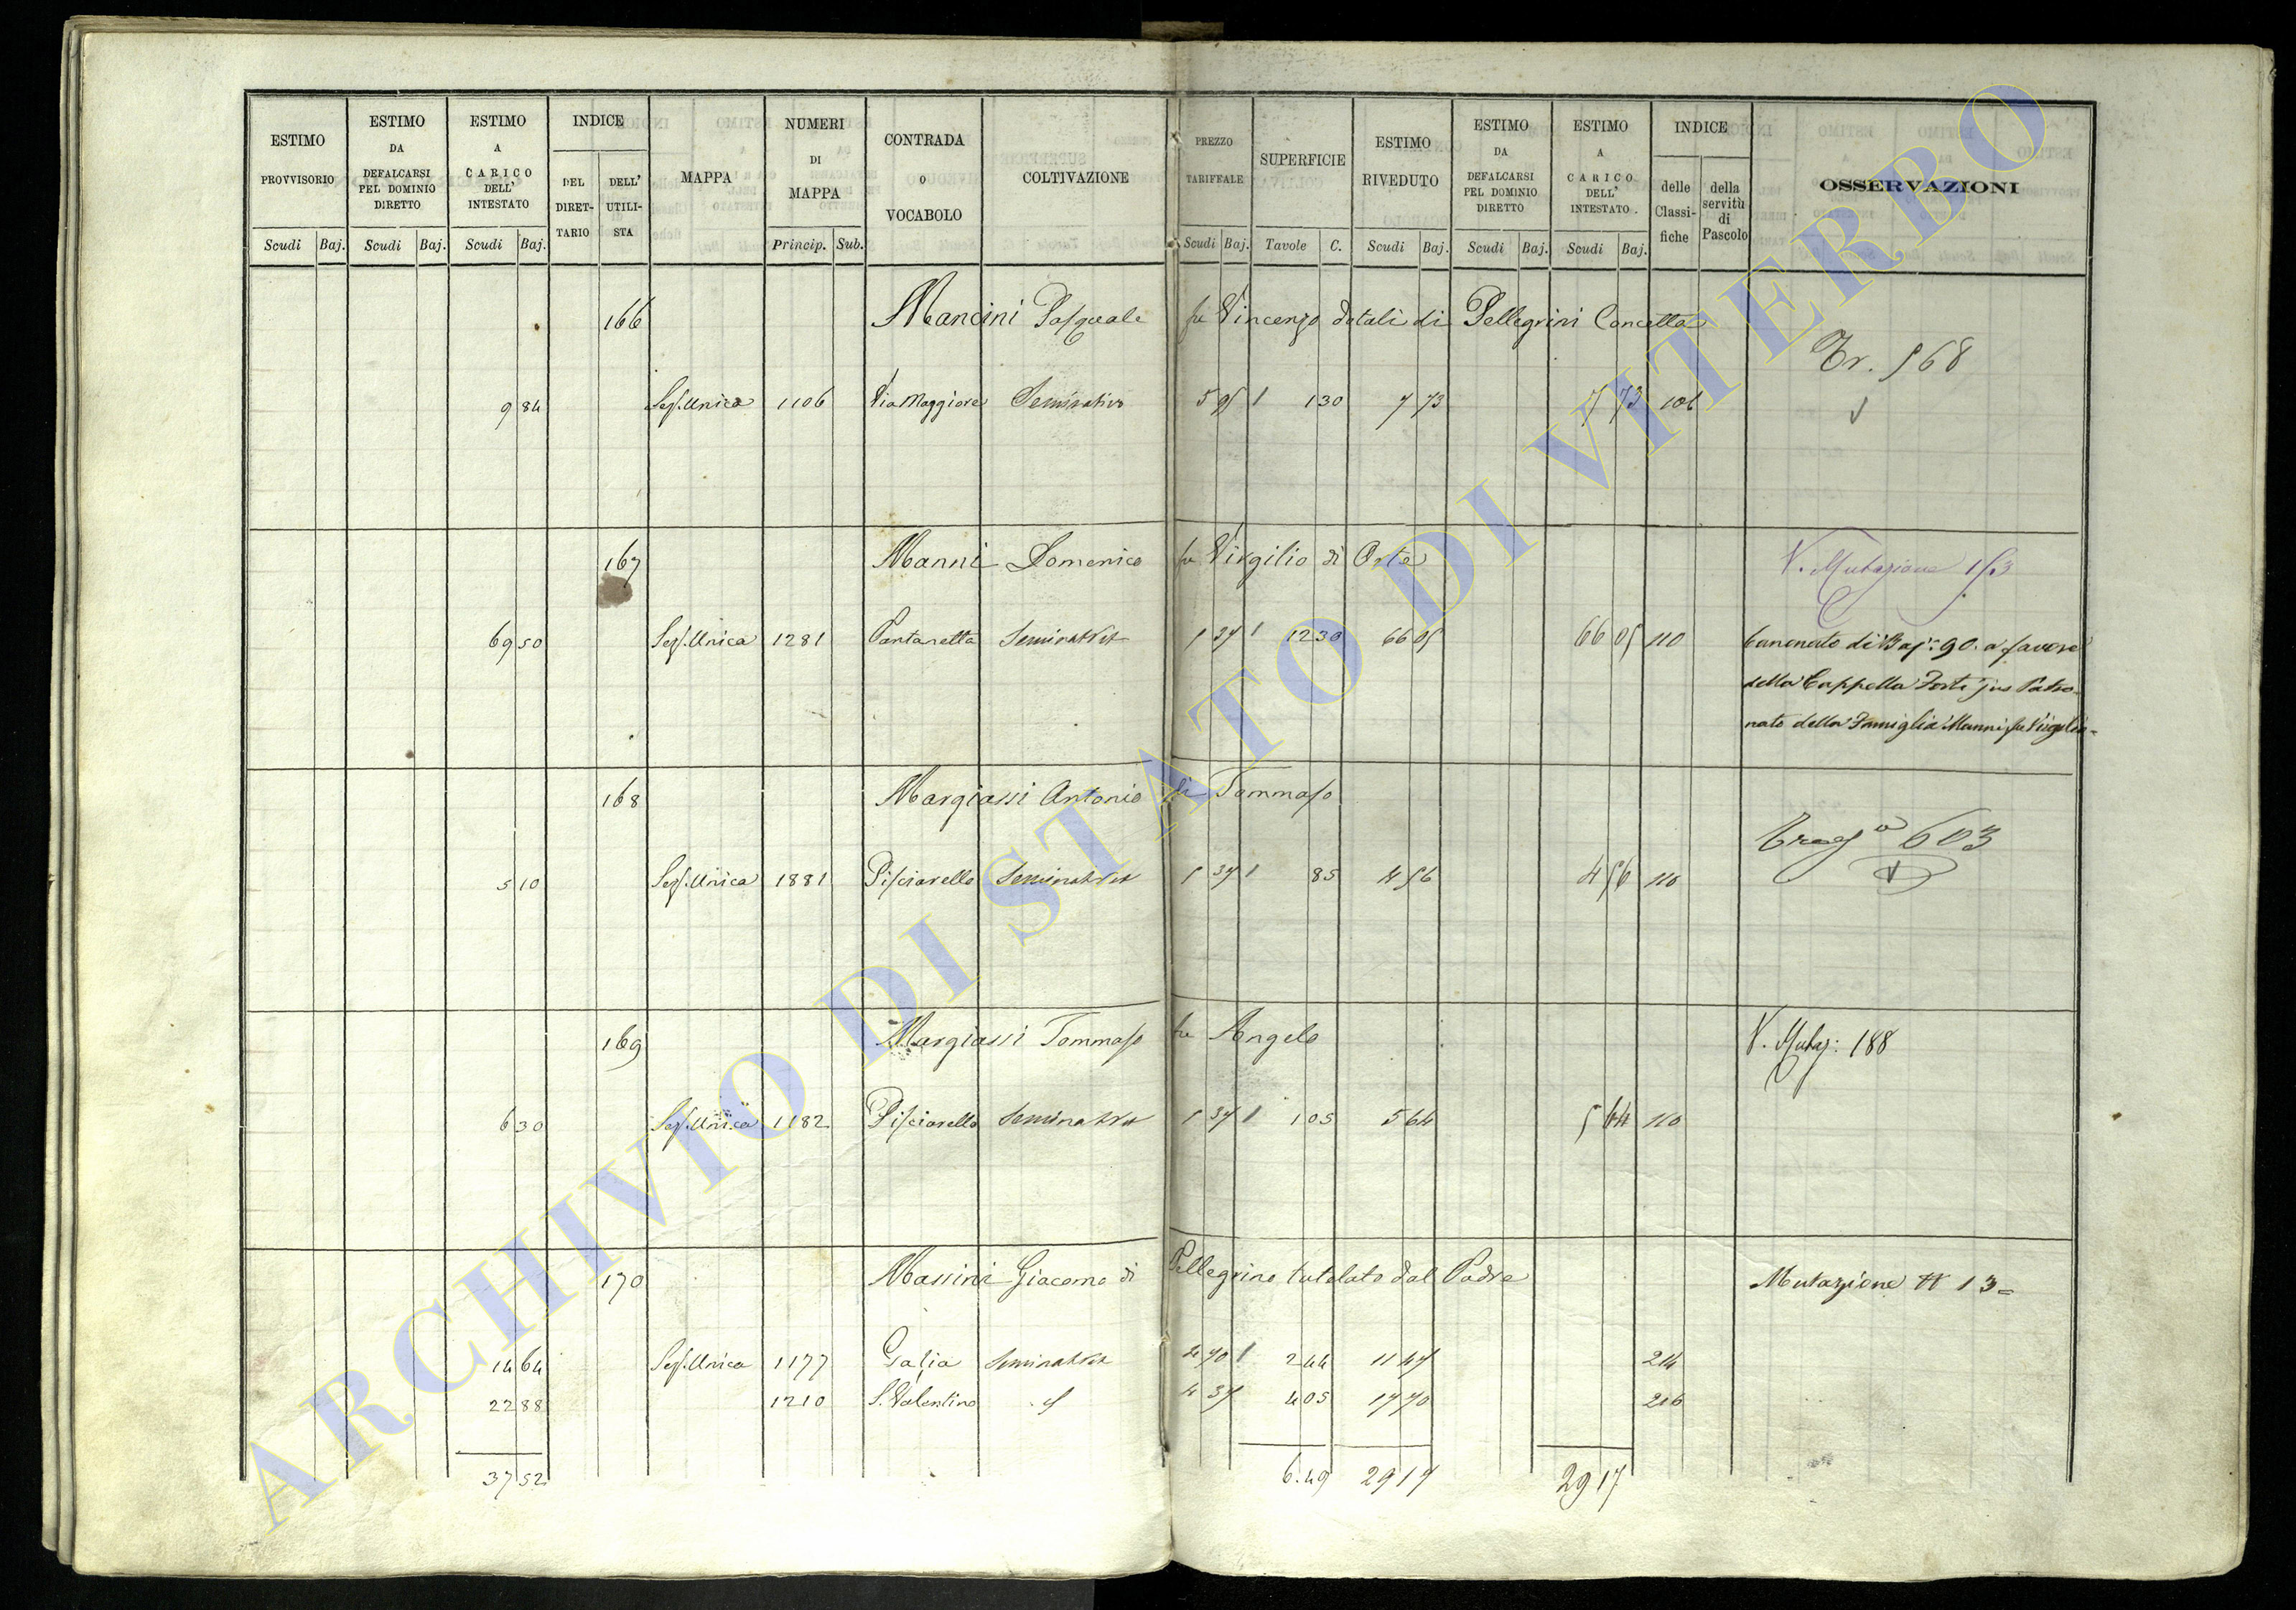 ESTIMO PROVVISORIO | ESTIMO DA DEFALCARSI PEL DOMINIO DIRETTO | ESTIMO A CARICO DELL' INTESTATO | INDICE | MAPPA | NUMERI DI MAPPA | CONTRADA O VOCABOLO | COLTIVAZIONE | PREZZO TARIFFALE | SUPERFICIE | ESTIMO RIVEDUTO | ESTIMO DA DEFALCARSI PEL DOMINIO DIRETTO | ESTIMO A CARICO DELL' INTESTATO | INDICE | OSSERVAZIONI
DEL DIRET-TARIO | DELL' UTILI-STA | delle Classi-fiche | della servitù di Pascolo
Scudi | Baj. | Scudi | Baj. | Scudi | Baj. | Princip. | Sub. | Scudi | Baj. | Tavole | C. | Scudi | Baj. | Scudi | Baj. | Scudi | Baj.
166 Mancini Pasquale fu Vincenzo dotali di Pellegrini Concetta
Tr. 568
9 84 Sez. Unica 1106 Via Maggiore Seminativo 5 95 1 30 7 73 7 73 106
167 Manni Domenico fu Virgilio di Orte V. Mutazione 153
69 50 Sez. Unica 1281 Pantanella Seminativo 5 37 12 30 66 05 66 05 110 Canonato di Baj: 90. a favore
della Cappella Forti jus Patro-
nato della Famiglia Manni fu Virgilio=
168 Margiassi Antonio di Tommaso
603
5 10 Sez. Unica 1881 Pisciarello Seminativo 5 37 85 4 56 4 56 110
169 Margiassi Tommaso fu Angelo V. Mutaz: 188
6 30 Sez. Unica 1182 Pisciarello Seminativo 5 37 1 05 5 64 5 64 110
170 Massini Giacomo di Pellegrino tutelato dal Padre Mutazione N 13=
14 64 Sez. Unica 1177 Seminativo 4 70 2 44 11 47 214
22 88 1210 S. Valentino 4 37 4 05 17 70 216
37 52 6.49 29 17 29 17
ARCHIVIO DI STATO DI VITERBO